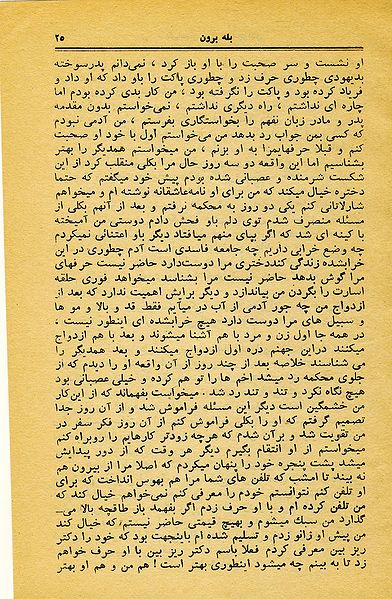 بله برون
۲۵
او نشست و سر صحبت را با او باز کرد ، نمی‌دانم پدرسوخته
بدیهودی چطوری حرف زد و چطوری پاکت را باو داد که او داد و
فریاد کرده بود و پاکت را نگرفته بود ، من کار بدی کرده بودم اما
چاره ای نداشتم ، راه دیگری نداشتم ، نمی‌خواستم بدون مقدمه
پدر و مادر زبان نفهم را بخواستگاری بفرستم ، من آدمی نبودم
که کسی بمن جواب رد بدهد من می‌خواستم اول با خود او صحبت
کنم و قبلا حرفهایم را به او بزنم ، من میخواستم همدیگر را بهتر
بشناسیم اما این واقعه دو سه روز حال مرا بکلی منقلب کرد از این
شکست شرمنده و عصبانی شده بودم پیش خود میگفتم که حتما
دختره خیال میکند که من برای او نامه عاشقانه نوشته ام و میخواهم
شارلاتانی کنم یکی دو روز به محکمه نرفتم و بعد از آنهم بکلی از
مسئله منصرف شدم توی دلم باو فحش دادم دوستی من آمیخته
با کینه ای شد که اگر بپای منهم میافتاد دیگر باو اعتنائی نمیکردم
چه وضع خرابی داریم چه جامعه فاسدی است آدم چطوری در این
خرابشده زندگی کند دختری مرا دوست دارد حاضر نیست حرفهای
مرا گوش بدهد حاضر نیست مرا بشناسد میخواهد فوری حلقه
اسارت را بگردن من بیاندازد و دیگر برایش اهمیت ندارد که بعد از
ازدواج من چه جور آدمی از آب در میآیم فقط قد و بالا و مو ها
و سبیل های مرا دوست دارد هیچ خرابشده ای اینطور نیست ،
در همه جا اول زن و مرد با هم آشنا میشوند و بعد با هم ازدواج
میکنند دراین جهنم دره اول ازدواج میکنند و بعد همدیگر را
می شناسند خلاصه بعد از چند روز از آن واقعه او را دیدم که از
جلوی محکمه رد میشد اخم ها را تو هم کرده و خیلی عصبانی بود
هیچ نگاه نکرد و تند و تند رد شد . میخواست بفهماند که از این کار
من خشمگین است دیگر این مسئله فراموش شد و از آن روز جدا
تصمیم گرفتم که او را بکلی فراموش کنم از آن روز فکر سفر در
من تقویت شد و برآن شدم که هرچه زودتر کارهایم را روبراه کنم
میخواستم از او انتقام بگیرم دیگر هر وقت که از دور پیدایش
میشد پشت پنجره خود را پنهان میکردم که اصلا مرا از بیرون هم
نه بیند تا امشب که تلفن های شما مرا هم بهوس انداخت که برای
او تلفن کنم نتوانستم خودم را معرفی کنم نمی‌خواهم خیال کند که
من تلفن کرده ام و با او حرف زدم اگر بفهمد باز طاقچه بالا می‌ـ
گذارد من سبك میشوم و بهیچ قیمتی حاضر نیستم که خیال کند
من پیش او زانو زدم و تسلیم شده ام باینجهت بود که خود را دکتر
ریز بین معرفی کردم فعلا باسم دکتر ریز بین با او حرف خواهم
زد تا به بینم چه میشود اینطوری بهتر است ! هم من و هم او بهتر